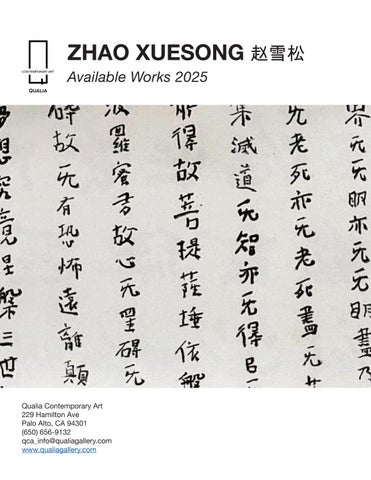 CONTEMPORARY ART
QUALIA
ZHAO XUESONG 赵雪松
Available Works 2025
界无无明亦无无明盡乃
无老死亦无老死盡无
集滅道无智亦无得㠯
所得故菩提薩埵依般
波羅蜜多故心无罣礙无
礙故无有恐怖遠離顛
夢想究竟涅槃三世
Qualia Contemporary Art
229 Hamilton Ave
Palo Alto, CA 94301
(650) 656-9132
qca_info@qualiagallery.com
www.qualiagallery.com